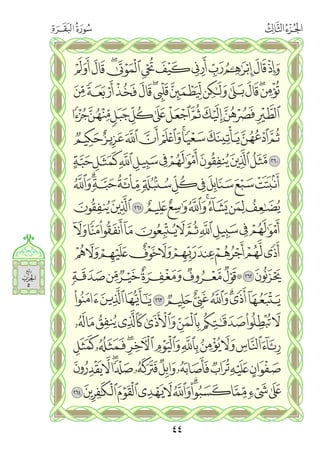 سُورَةُ البَقَرَةِ الجُزْءُ الثَّالِثُ
وَإِذْ قَالَ إِبْرَٰهِـۧمُ رَبِّ أَرِنِى كَيْفَ تُحْىِ ٱلْمَوْتَىٰ ۖ قَالَ أَوَلَمْ
تُؤْمِن ۖ قَالَ بَلَىٰ وَلَٰكِن لِّيَطْمَئِنَّ قَلْبِى ۖ قَالَ فَخُذْ أَرْبَعَةً مِّنَ
ٱلطَّيْرِ فَصُرْهُنَّ إِلَيْكَ ثُمَّ ٱجْعَلْ عَلَىٰ كُلِّ جَبَلٍ مِّنْهُنَّ جُزْءًا
ثُمَّ ٱدْعُهُنَّ يَأْتِينَكَ سَعْيًا ۚ وَٱعْلَمْ أَنَّ ٱللَّهَ عَزِيزٌ حَكِيمٌ
٢٦٠ مَّثَلُ ٱلَّذِينَ يُنفِقُونَ أَمْوَٰلَهُمْ فِى سَبِيلِ ٱللَّهِ كَمَثَلِ حَبَّةٍ
أَنۢبَتَتْ سَبْعَ سَنَابِلَ فِى كُلِّ سُنۢبُلَةٍ مِّا۟ئَةُ حَبَّةٍ ۗ وَٱللَّهُ
يُضَٰعِفُ لِمَن يَشَآءُ ۗ وَٱللَّهُ وَٰسِعٌ عَلِيمٌ ٢٦١ ٱلَّذِينَ يُنفِقُونَ
أَمْوَٰلَهُمْ فِى سَبِيلِ ٱللَّهِ ثُمَّ لَا يُتْبِعُونَ مَآ أَنفَقُوا۟ مَنًّا وَلَآ
أَذًى ۙ لَّهُمْ أَجْرُهُمْ عِندَ رَبِّهِمْ وَلَا خَوْفٌ عَلَيْهِمْ وَلَا هُمْ
يَحْزَنُونَ ٢٦٢ قَوْلٌ مَّعْرُوفٌ وَمَغْفِرَةٌ خَيْرٌ مِّن صَدَقَةٍ
يَتْبَعُهَآ أَذًى ۗ وَٱللَّهُ غَنِىٌّ حَلِيمٌ ٢٦٣ يَٰٓأَيُّهَا ٱلَّذِينَ ءَامَنُوا۟
لَا تُبْطِلُوا۟ صَدَقَٰتِكُم بِٱلْمَنِّ وَٱلْأَذَىٰ كَٱلَّذِى يُنفِقُ مَالَهُۥ
رِئَآءَ ٱلنَّاسِ وَلَا يُؤْمِنُ بِٱللَّهِ وَٱلْيَوْمِ ٱلْـَٔاخِرِ ۖ فَمَثَلُهُۥ كَمَثَلِ
صَفْوَانٍ عَلَيْهِ تُرَابٌ فَأَصَابَهُۥ وَابِلٌ فَتَرَكَهُۥ صَلْدًا ۖ لَّا يَقْدِرُونَ
عَلَىٰ شَىْءٍ مِّمَّا كَسَبُوا۟ ۗ وَٱللَّهُ لَا يَهْدِى ٱلْقَوْمَ ٱلْكَٰفِرِينَ ٢٦٤
٤٤